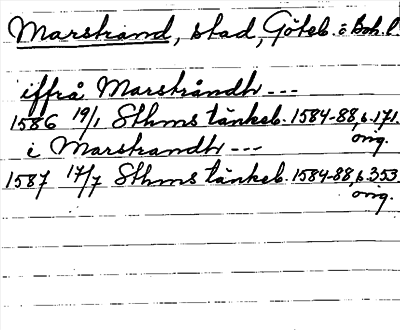 Marstrand, stad, Göteb. o. Boh. l.
iffrå Marstråndh ---
1586 19/1 Sthms tänkeb. 1584-88, s. 171.
orig.
i Marstrandh ---
1587 17/7 Sthms tänkeb. 1584-88, s. 353
orig.